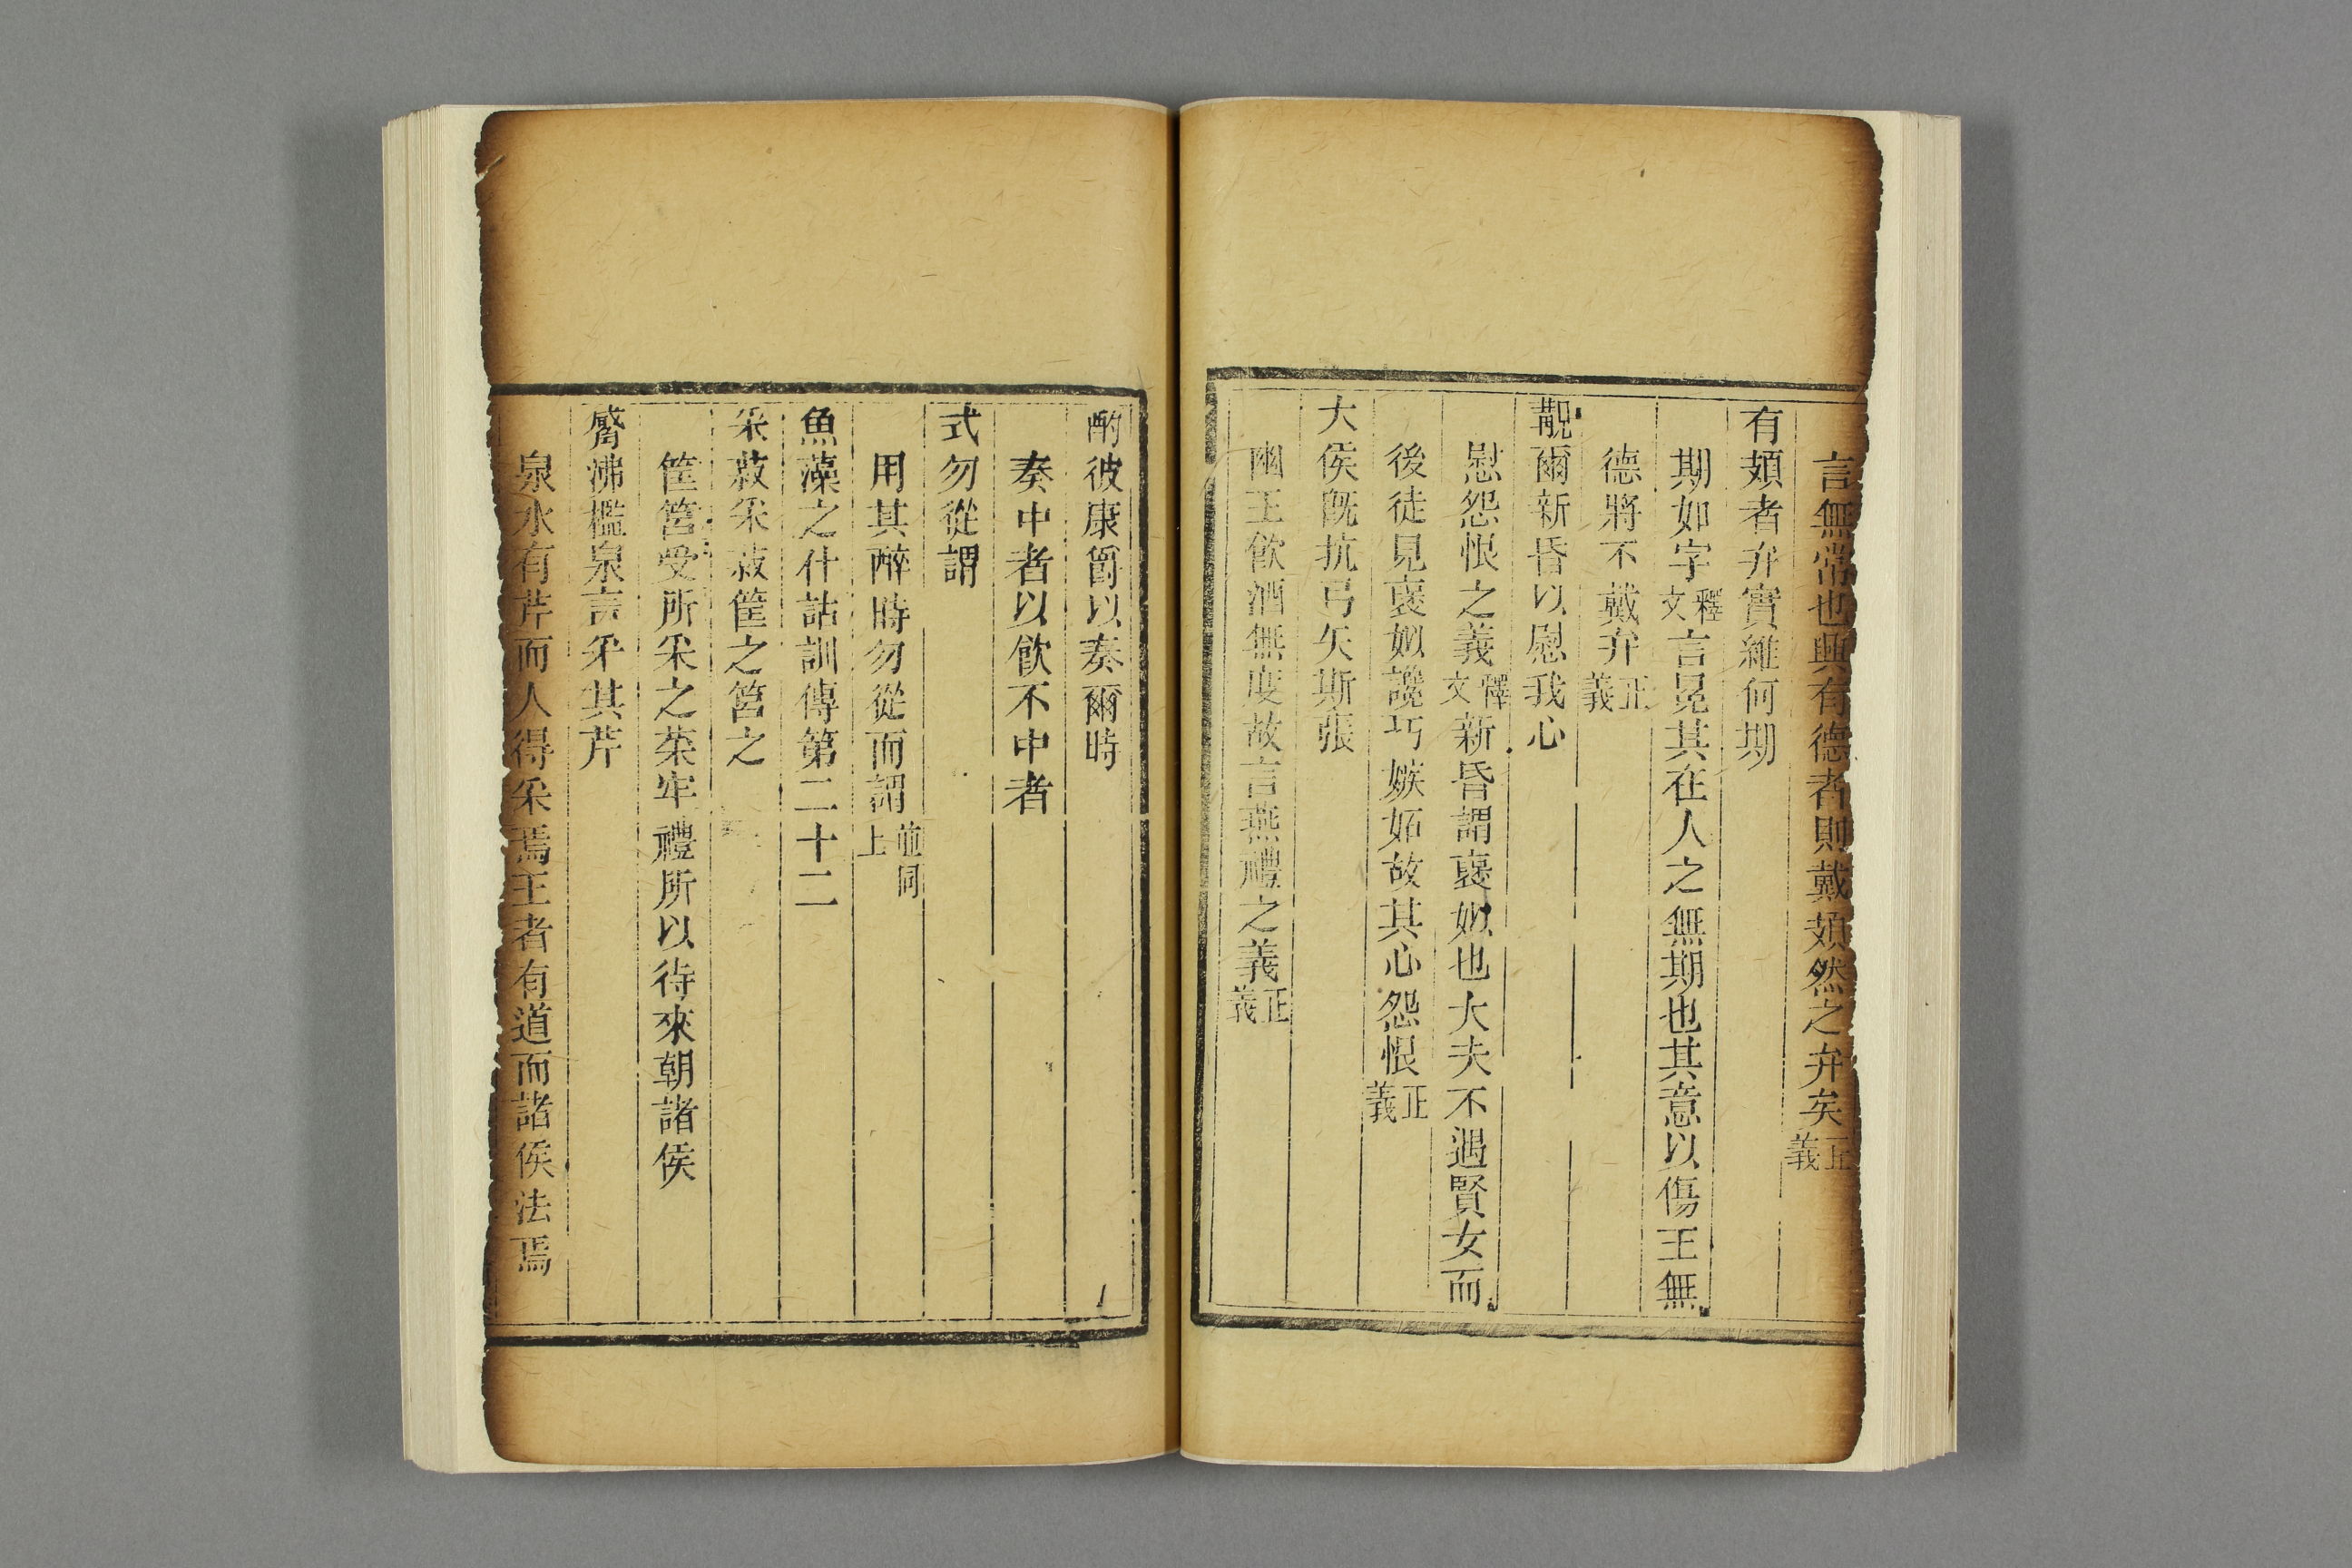 言無常也興有德者則戴頍然之弁矣正義
有頍者弁實維何期
期如字釋文言冕其在人之無期也其意以傷王無
德將不戴弁正義
覯爾新昏以慰我心
慰怨恨之義釋文新昏謂褒姒也大夫不遇賢女而
後徒見褒姒讒巧嫉妬故其心怨恨正義
大侯旣抗弓矢斯張
幽王飮酒無度故言燕禮之義正義
酌彼康爵以奏爾時
奏中者以飮不中者
式勿從謂
用其醉時勿從而謂並同上
魚藻之什詁訓傳第二十二
采菽采菽筐之筥之
筐筥受所采之菜牢禮所以待來朝諸侯
觱沸檻泉言采其芹
泉水有芹而人得采焉王者有道而諸侯法焉